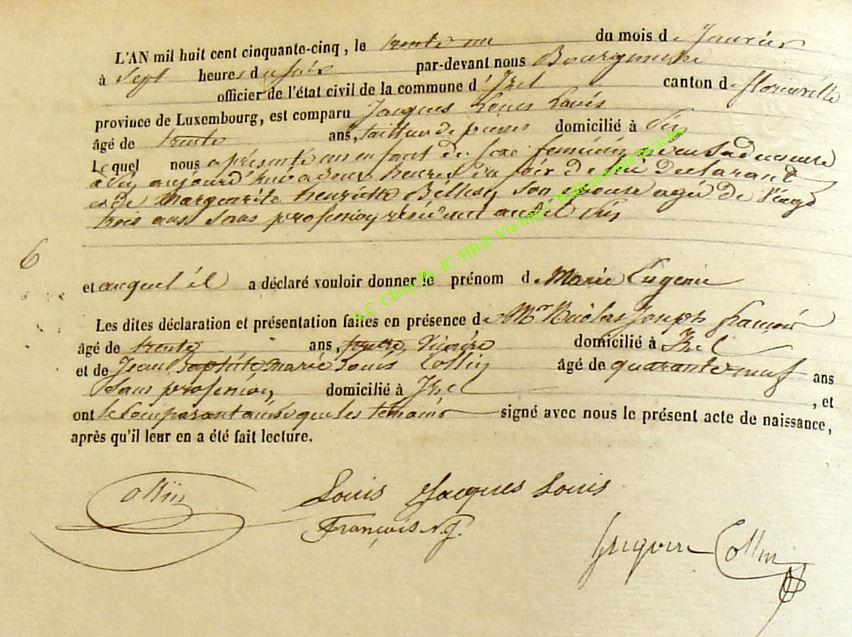 L'AN mil huit cent cinquante-cinq, le trente un du mois de Janvier
à Sept heures du soir par-devant nous Bourgmestre
officier de l'état civil de la commune d'Izel canton de florenville
province de Luxembourg, est comparu Jacques Louis Louis
âgé de trente ans, tailleur de pierres domicilié à
Lequel nous a présenté un enfant de sexe féminin né en sa demeure
aujourd'hui a deux heures du soir de lui déclarant
et de Marguerite henriette son épouse agé de vingt
trois ans sans profession résidant
6
et auquel il a déclaré vouloir donner le prénom de Marie Eugenie
Les dites déclaration et présentation faites en présence de Mr Nicolas Joseph françois
âgé de trente ans, vicaire domicilié à Izel
et de Jean Baptiste marie Louis Collin âgé de quarante neuf ans
sans profession domicilié à Izel , et
ont le comparant ainsi que les témoins signé avec nous le présent acte de naissance,
après qu'il leur en a été fait lecture.
Collin Louis Jacques Louis
François N.J.
Grégoire Collin